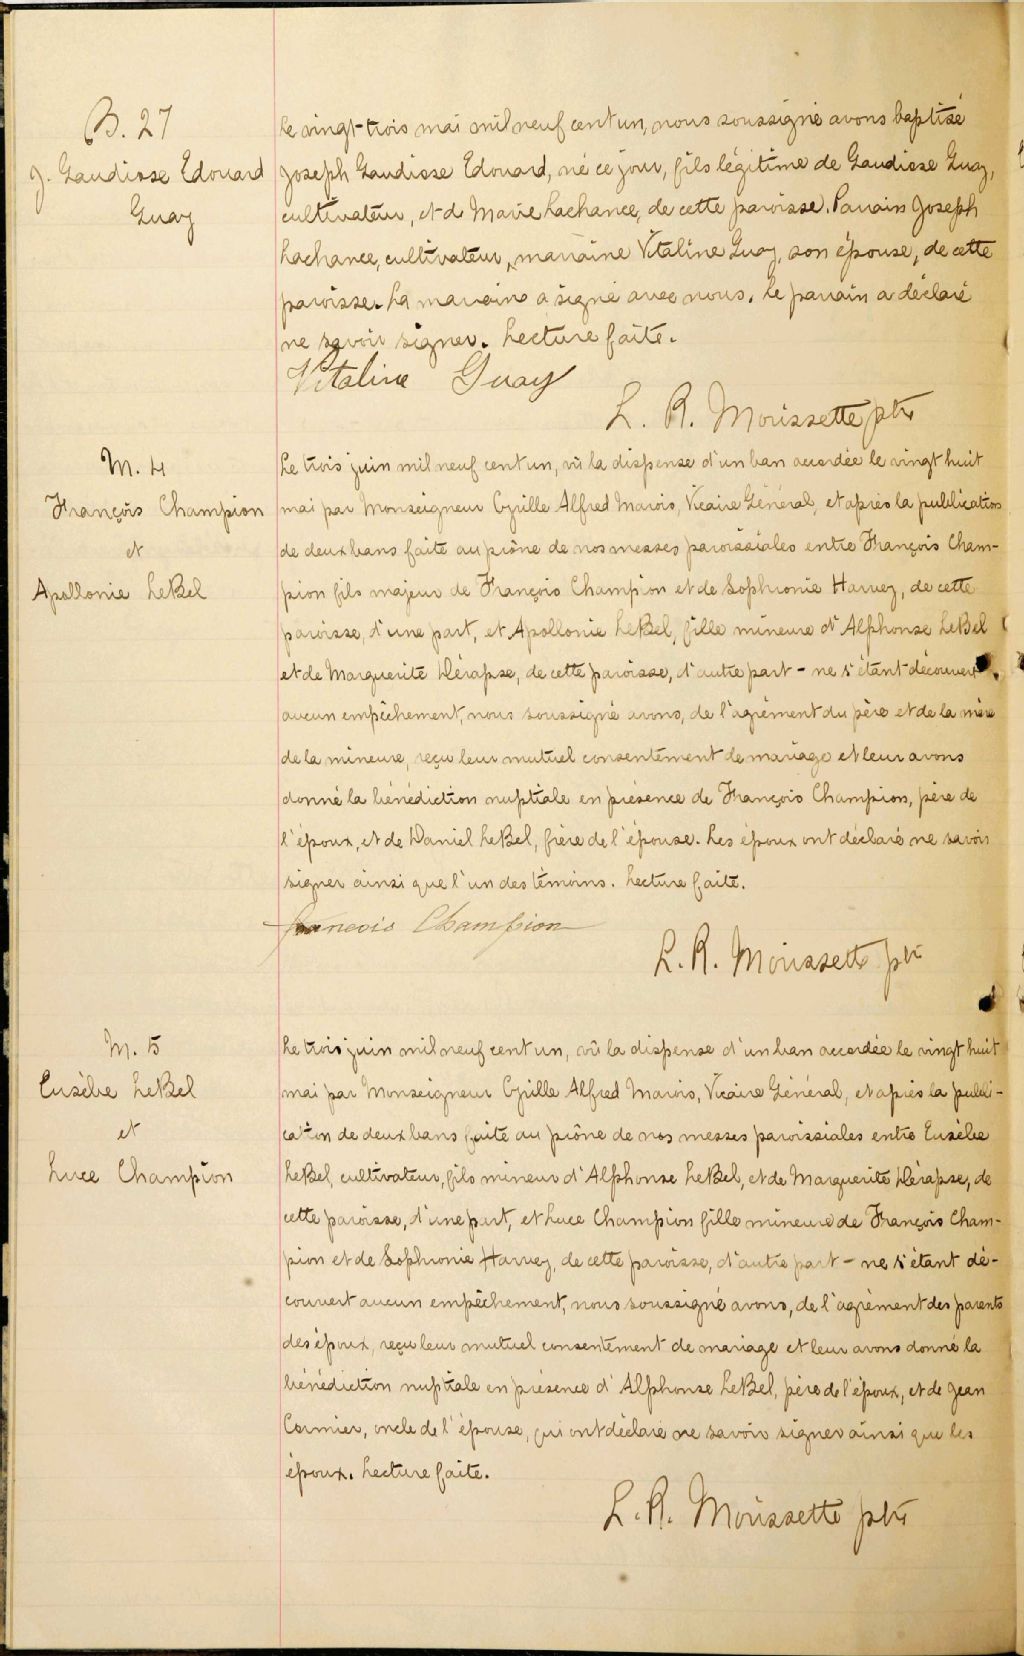 B. 27
J. Gaudiose Edouard
Guay
Le vingt-trois mai mil neuf cent un, nous soussigné avons baptisé
Joseph Gaudiose Edouard, né ce jour, fils légitime de Gaudiose Guay,
cultivateur, et de Marie Lachance, de cette paroisse. Parrain Joseph
Lachance, cultivateur, marraine Vitaline Guay, son épouse, de cette
paroisse. La marraine a signé avec nous. Le parrain a déclaré
ne savoir signer. Lecture faite.
Vitaline Guay
L. R. Morissette ptre
M. 4
François Champion
et
Apollonie LeBel
Le trois juin mil neuf cent un, vû la dispense d'un ban accordée le vingt huit
mai par Monseigneur Cyrille Alfred Marois, Vicaire Général, et après la publication
de deux bans faite au prône de nos messes paroissiales entre François Cham-
pion fils majeur de François Champion et de Sophronie Harvey, de cette
paroisse, d'une part, et Apollonie LeBel, fille mineure d'Alphonse LeBel
et de Marguerite Dérapse, de cette paroisse, d'autre part - ne s'étant découvert
aucun empêchement, nous soussigné avons, de l'agrément du père et de la mère
de la mineure, reçu leur mutuel consentement de mariage et leur avons
donné la bénédiction nuptiale en présence de François Champion, père de
l'époux, et de Daniel LeBel, frère de l'épouse. Les époux ont déclaré ne savoir
signer ainsi que l'un des témoins. Lecture faite.
francois Champion
L. R. Morissette ptr
M. 5
Eusèbe LeBel
et
Luce Champion
Le trois juin mil neuf cent un, vû la dispense d'un ban accordée le vingt huit
mai par Monseigneur Cyrille Alfred Marois, Vicaire Général, et après la publi-
cation de deux bans faite au prône de nos messes paroissiales entre Eusèbe
LeBel, cultivateur, fils mineur d'Alphonse LeBel, et de Marguerite Dérapse, de
cette paroisse, d'une part, et Luce Champion fille mineure de François Cham-
pion et de Sophronie Harvey, de cette paroisse, d'autre part - ne s'étant dé-
couvert aucun empêchement, nous soussigné avons, de l'agrément des parents
des époux, reçu leur mutuel consentement de mariage et leur avons donné la
bénédiction nuptiale en présence d'Alphonse LeBel, père de l'époux, et de Jean
Cormier, oncle de l'épouse, qui ont déclaré ne savoir signer ainsi que les
époux. Lecture faite.
L. R. Morissette ptr